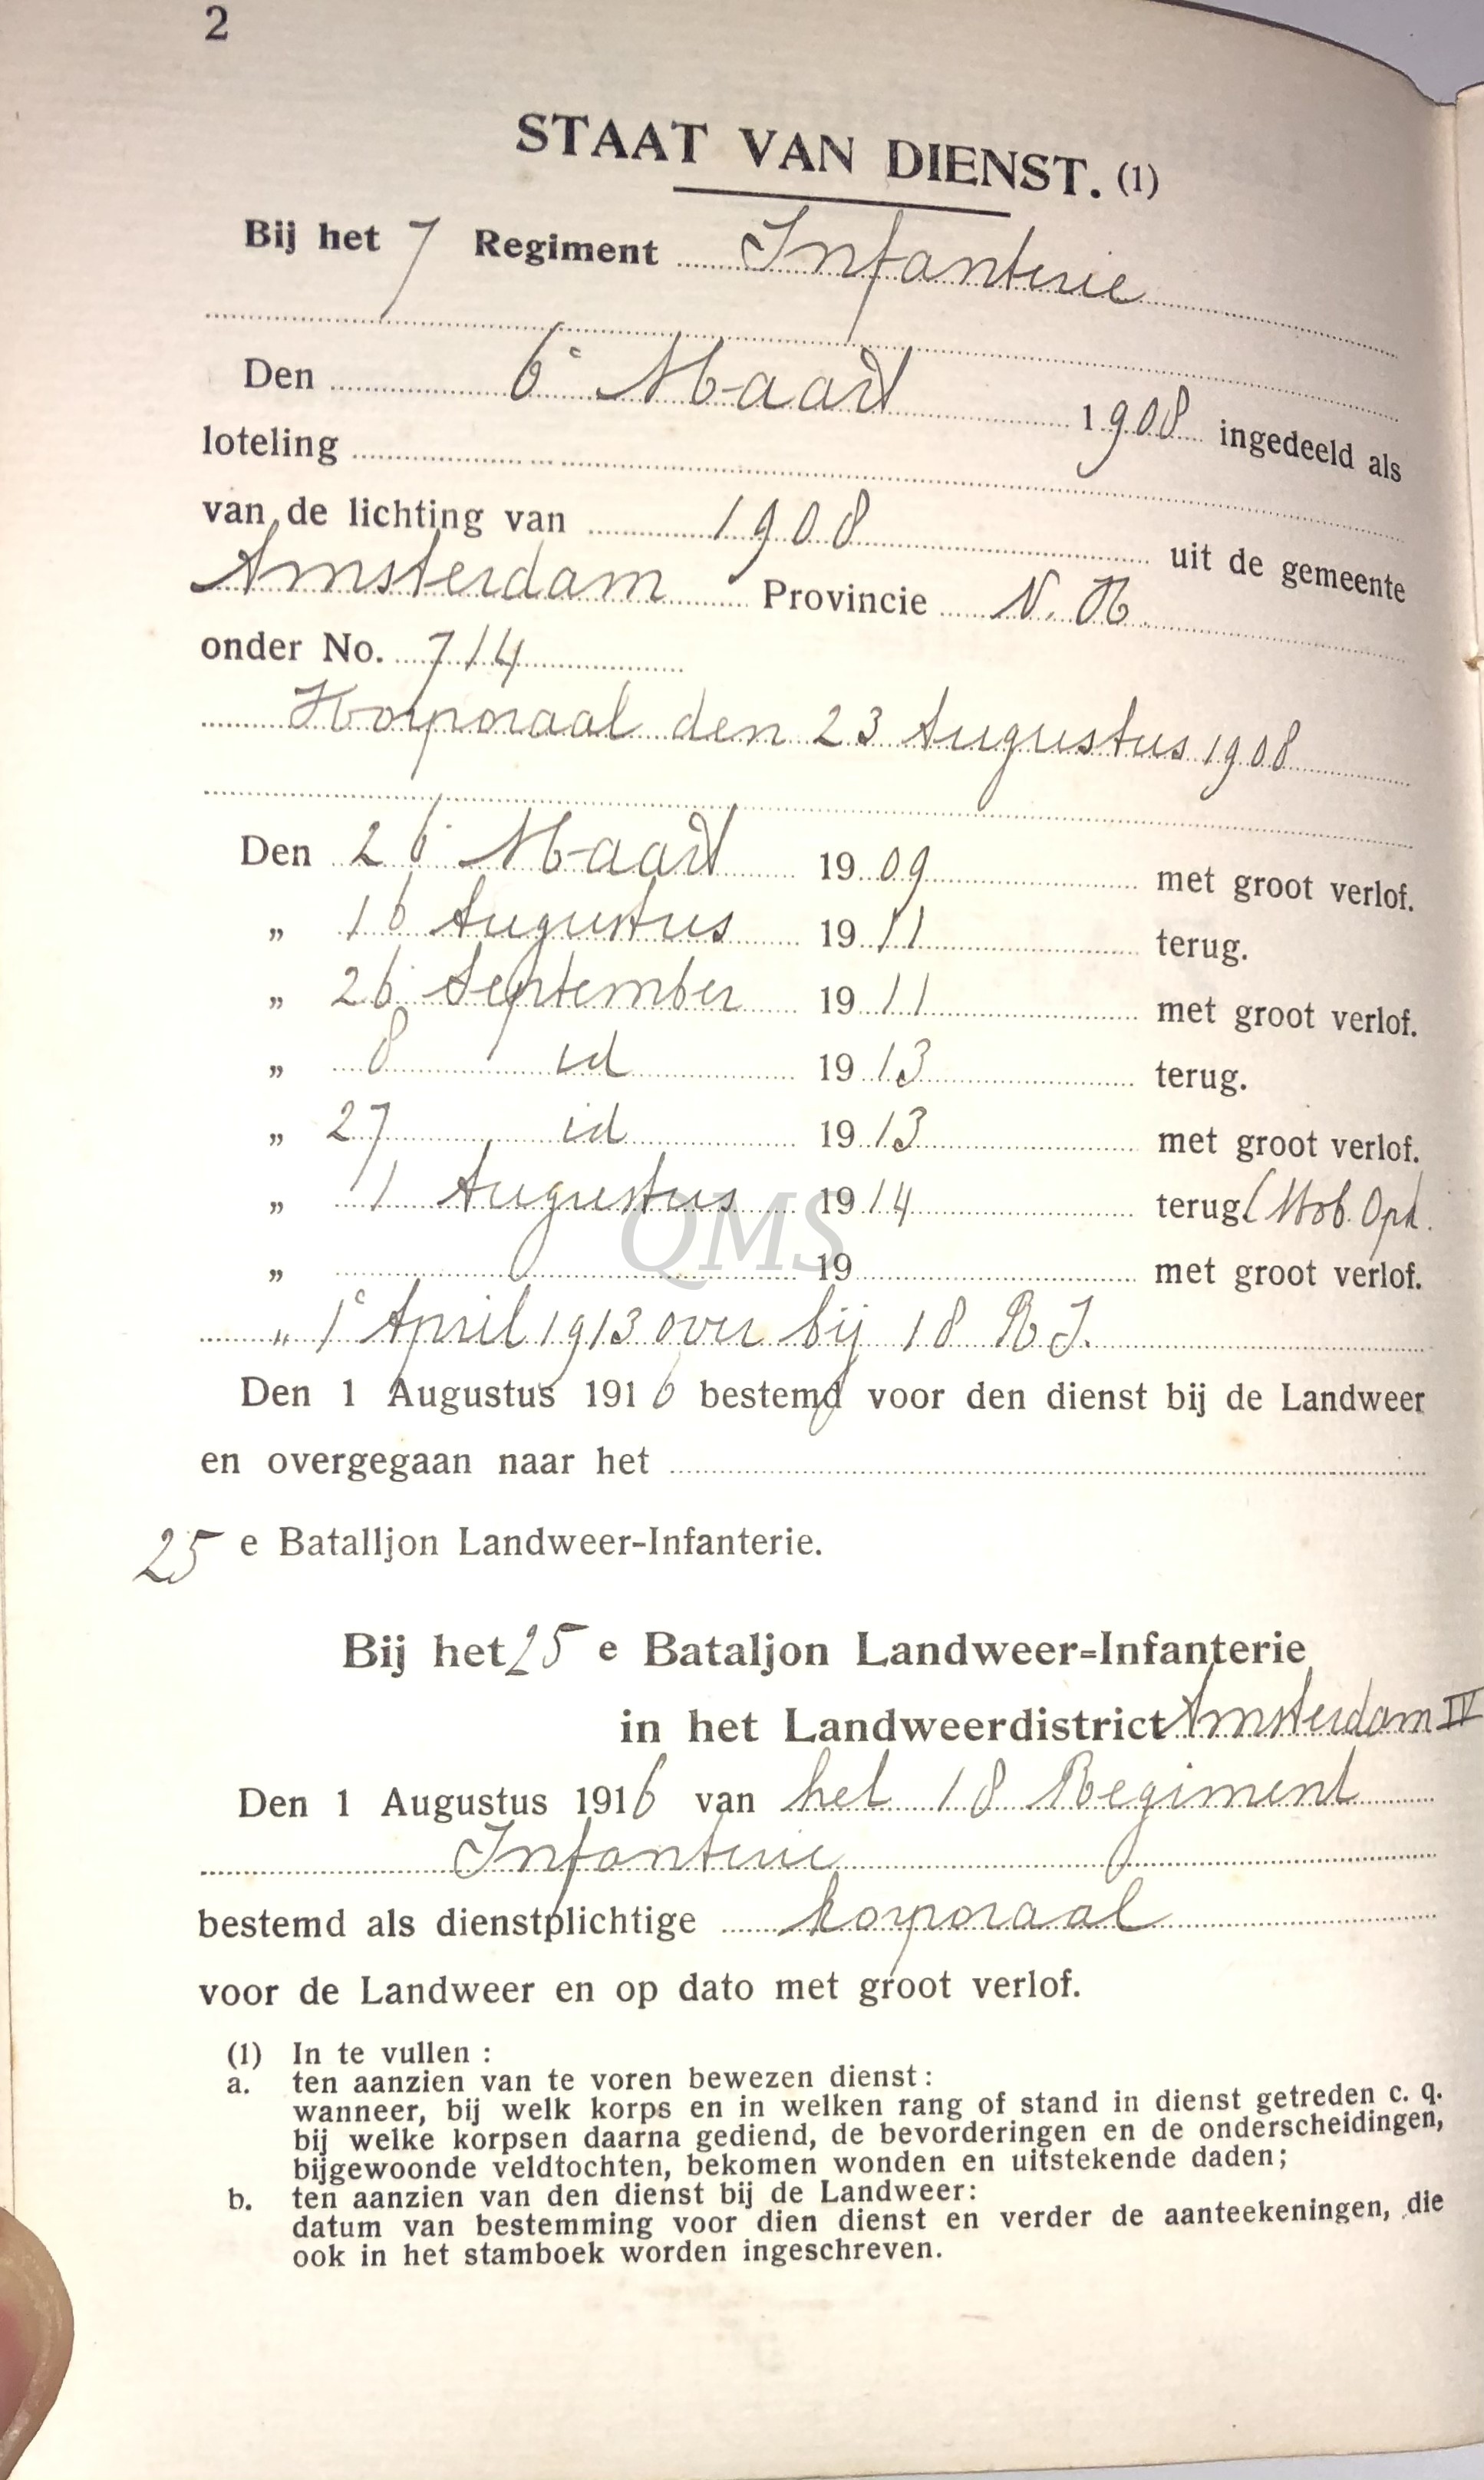 2
STAAT VAN DIENST. (1)
Bij het 7 Regiment Infanterie
Den 6e Maart 1908 ingedeeld als
loteling
van de lichting van 1908 uit de gemeente
Amsterdam Provincie N. H.
onder No. 714
Korporaal den 23 Augustus 1908
Den 26 Maart 1909 met groot verlof.
„ 16 Augustus 1911 terug.
„ 26 September 1911 met groot verlof.
„ 8 id 1913 terug.
„ 27 id 1913 met groot verlof.
„ 1 Augustus 1914 terug. (Mob. Opk.
„ 19 met groot verlof.
„ 1e April 1913 over bij 18 R I.
Den 1 Augustus 1916 bestemd voor den dienst bij de Landweer
en overgegaan naar het
25 e Batalljon Landweer-Infanterie.
Bij het 25 e Bataljon Landweer=Infanterie
in het Landweerdistrict Amsterdam IV
Den 1 Augustus 1916 van het 18 Regiment
Infanterie
bestemd als dienstplichtige korporaal
voor de Landweer en op dato met groot verlof.
(1) In te vullen :
a. ten aanzien van te voren bewezen dienst :
wanneer, bij welk korps en in welken rang of stand in dienst getreden c. q.
bij welke korpsen daarna gediend, de bevorderingen en de onderscheidingen,
bijgewoonde veldtochten, bekomen wonden en uitstekende daden;
b. ten aanzien van den dienst bij de Landweer:
datum van bestemming voor dien dienst en verder de aanteekeningen, die
ook in het stamboek worden ingeschreven.
QMS